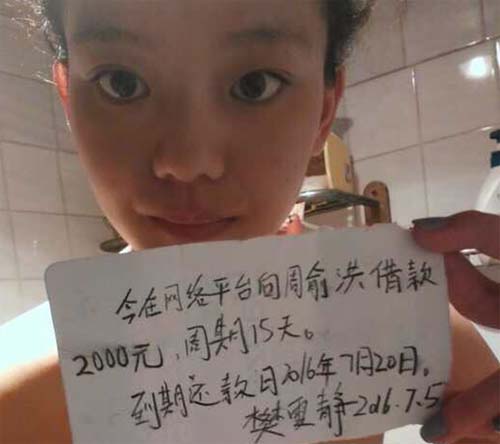 今在网络平台向周俞洪借款
2000元，周期15天。
到期还款日2016年7月20日。
樊雪静 2016.7.5